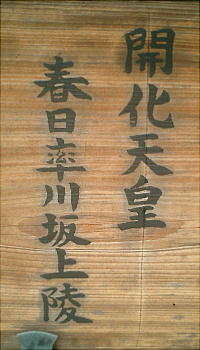 開化天皇
春日率川坂上陵